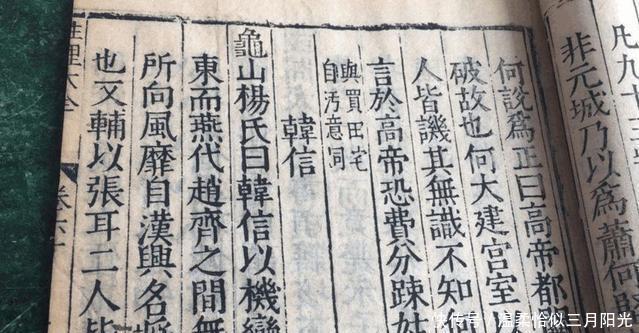 凡九十三
非元城乃以為蕭何
何說為正曰高帝都
破故也何大建宮室
人皆譏其無識不知
言於高帝恐費分疎姑
與買田宅
自汚意同
韓信
龜山楊氏曰韓信以機變
東而燕代趙齊之間無
所向風靡自漢興名
也又輔以張耳二人皆
性理大全
卷六十
快传号/温柔恰似三月阳光